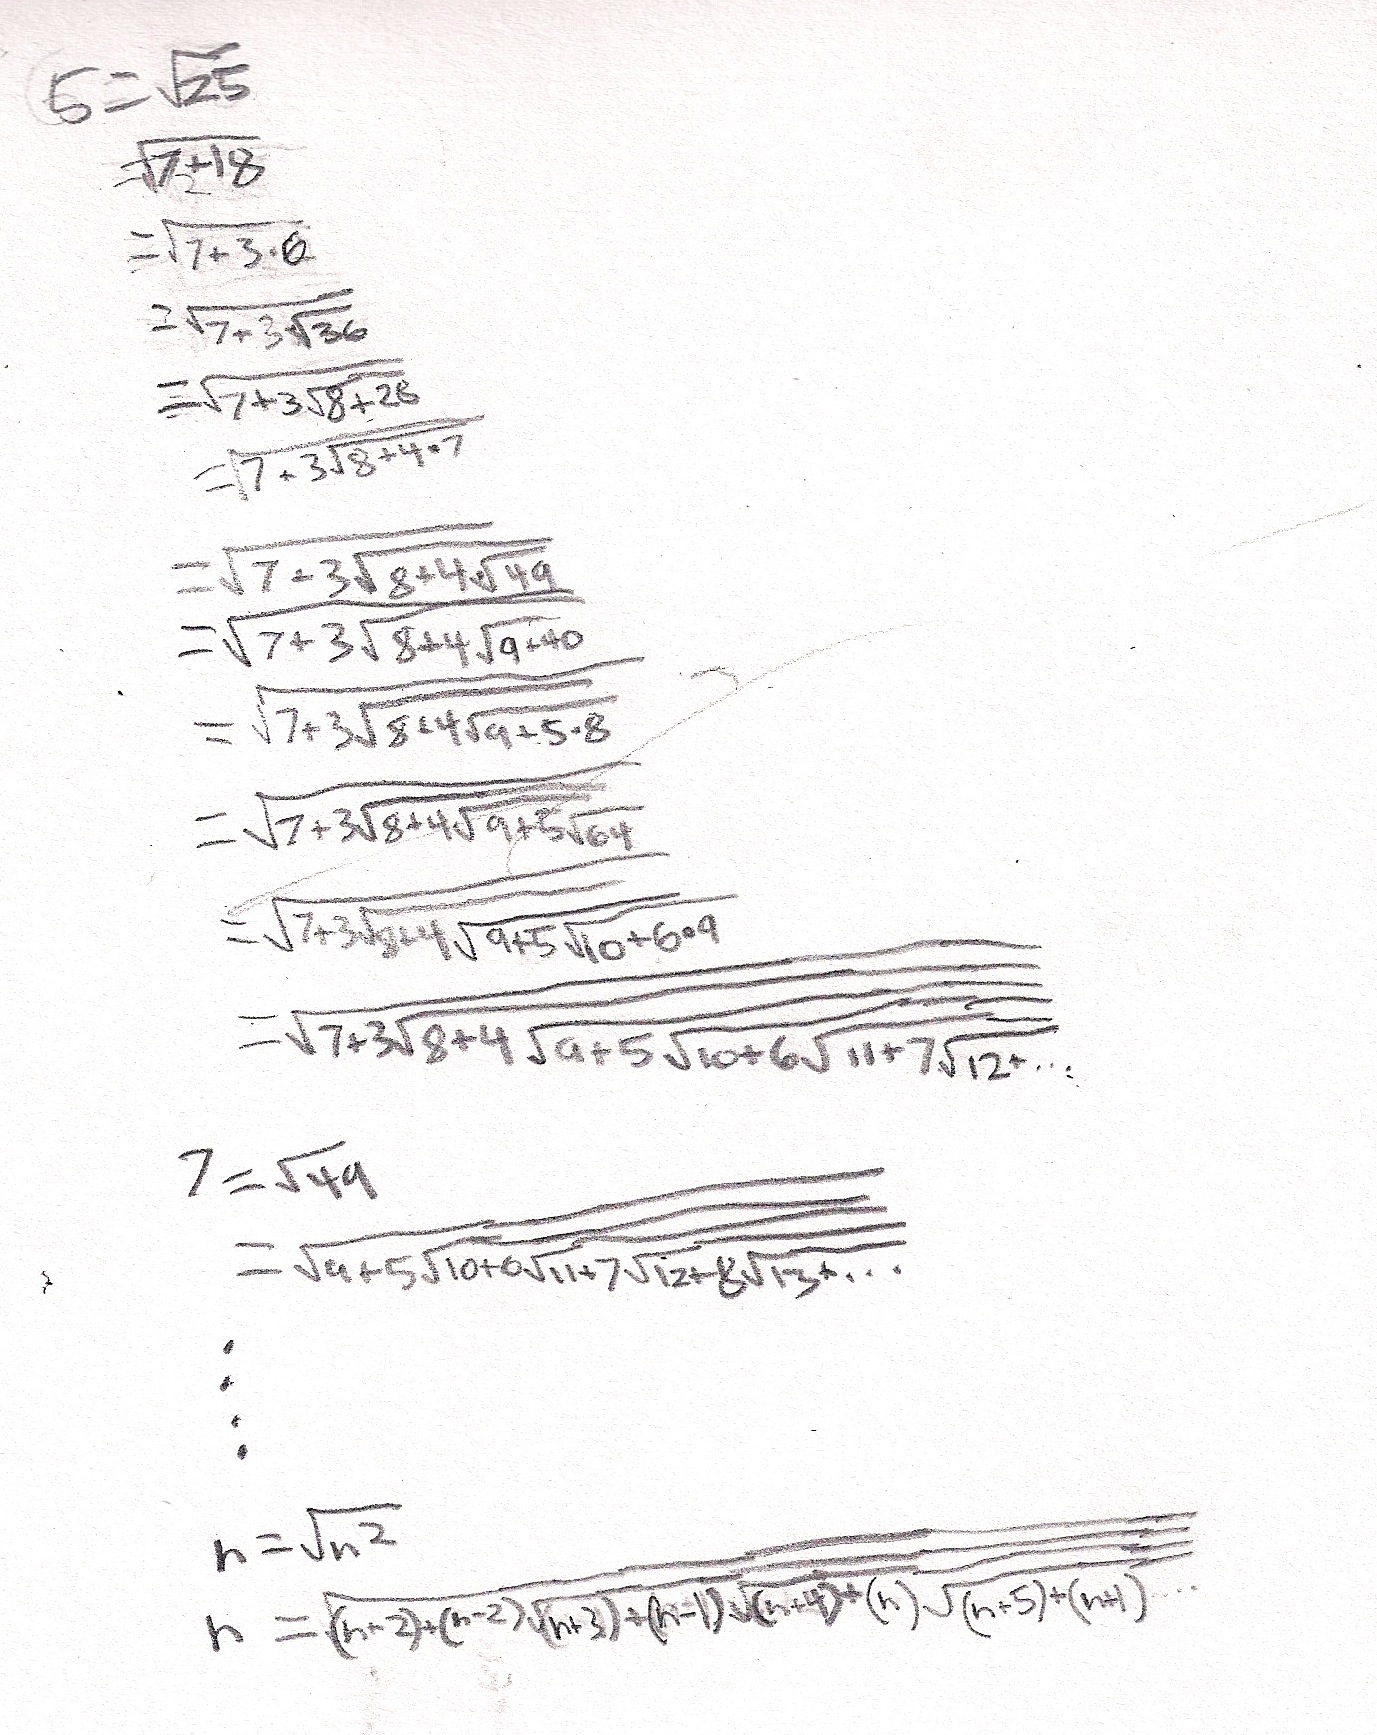 5=√25
=√7+18
=√7+3·6
=√7+3√36
=√7+3√8+28
=√7+3√8+4·7
=√7+3√8+4√49
=√7+3√8+4√9+40
=√7+3√8+4√9+5·8
=√7+3√8+4√9+5√64
=√7+3√8+4√9+5√10+6·9
=√7+3√8+4√9+5√10+6√11+7√12+...
7=√49
=√9+5√10+6√11+7√12+8√13+...
n=√n²
n=√(n+2)+(n-2)√(n+3)+(n-1)√(n+4)+(n)√(n+5)+(n+1)...